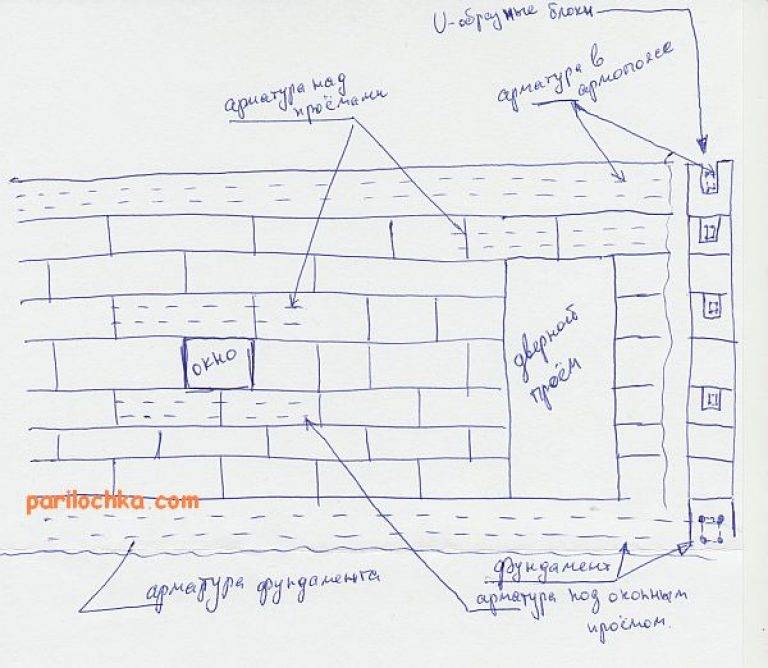 U-образные блоки
арматура в
армопоясе
арматура над
проёмами
окно
дверной
проём
parilochka.com
арматура фундамента
Фундамент
арматура под оконным
проёмом.